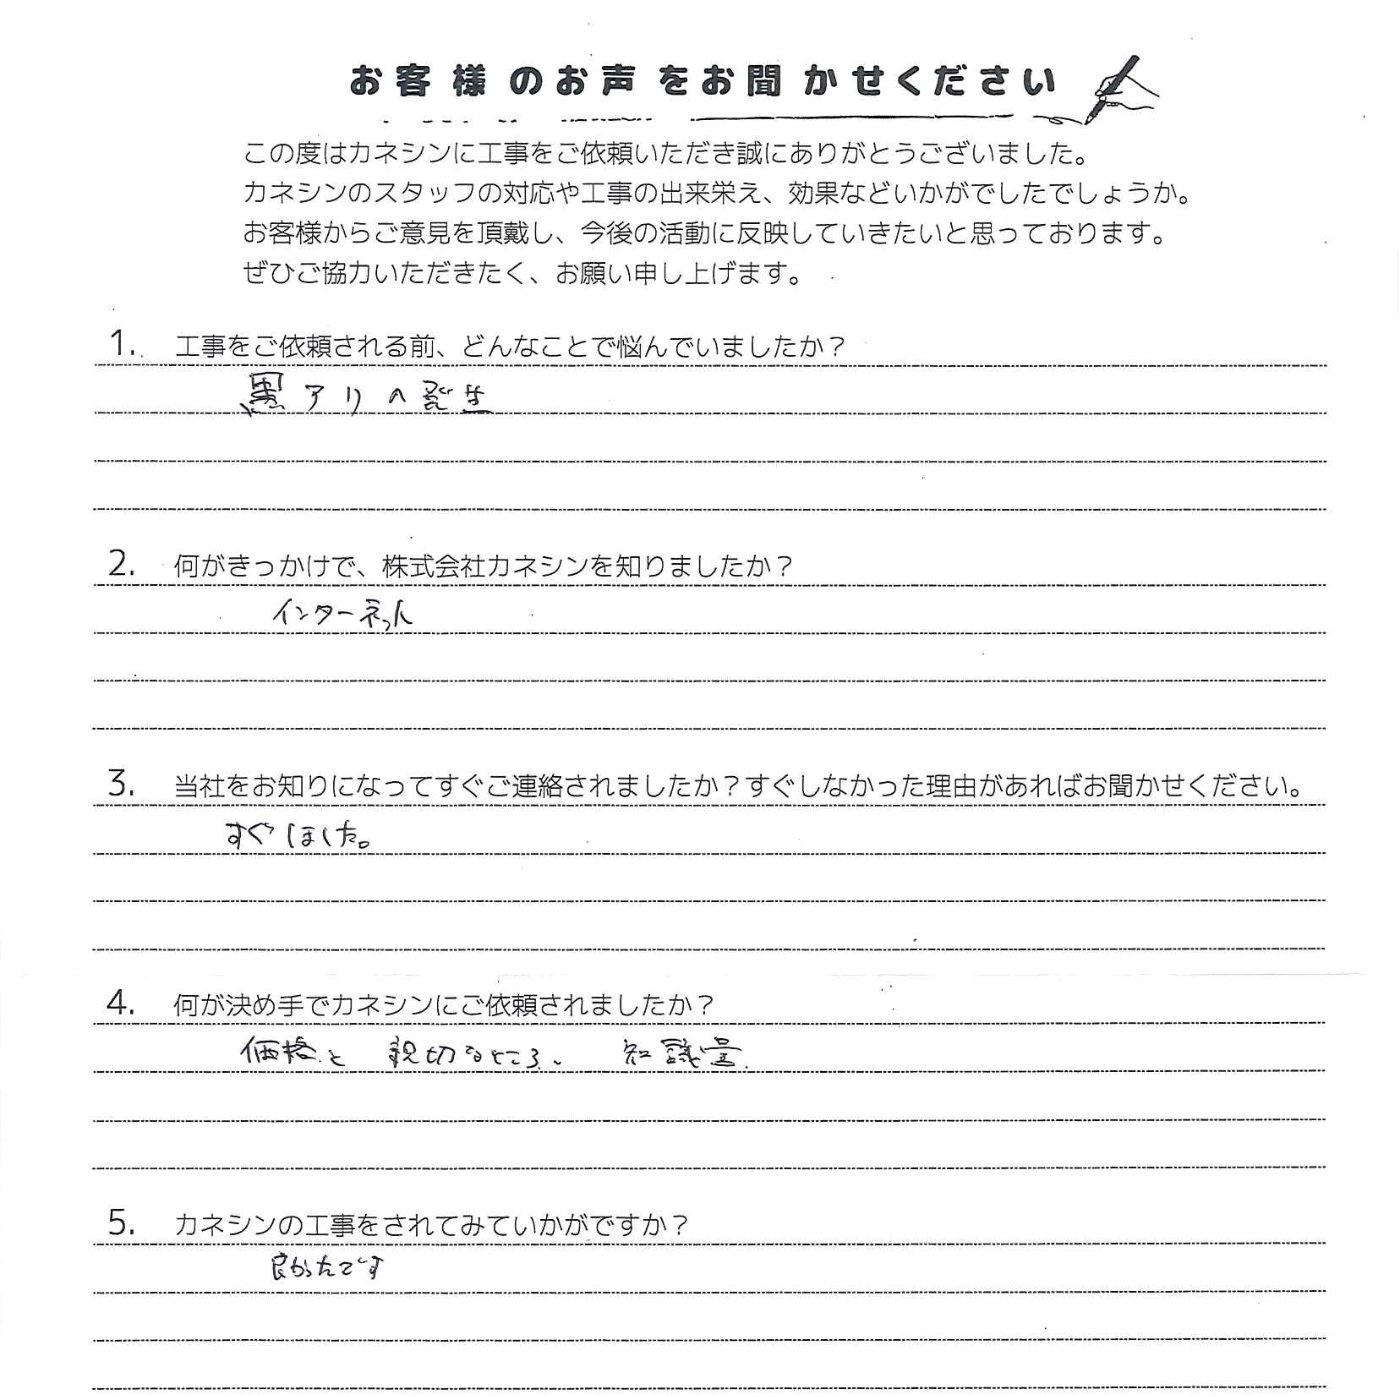 お客様のお声をお聞かせください
この度はカネシンに工事をご依頼いただき誠にありがとうございました。
カネシンのスタッフの対応や工事の出来栄え、効果などいかがでしたでしょうか。
お客様からご意見を頂戴し、今後の活動に反映していきたいと思っております。
ぜひご協力いただきたく、お願い申し上げます。
1. 工事をご依頼される前、どんなことで悩んでいましたか？
黒アリの発生
2. 何がきっかけで、株式会社カネシンを知りましたか？
インターネット
3. 当社をお知りになってすぐご連絡されましたか？すぐしなかった理由があればお聞かせください。
すぐしました。
4. 何が決め手でカネシンにご依頼されましたか？
価格と 親切なところ、 知識量
5. カネシンの工事をされてみていかがですか？
良かったです